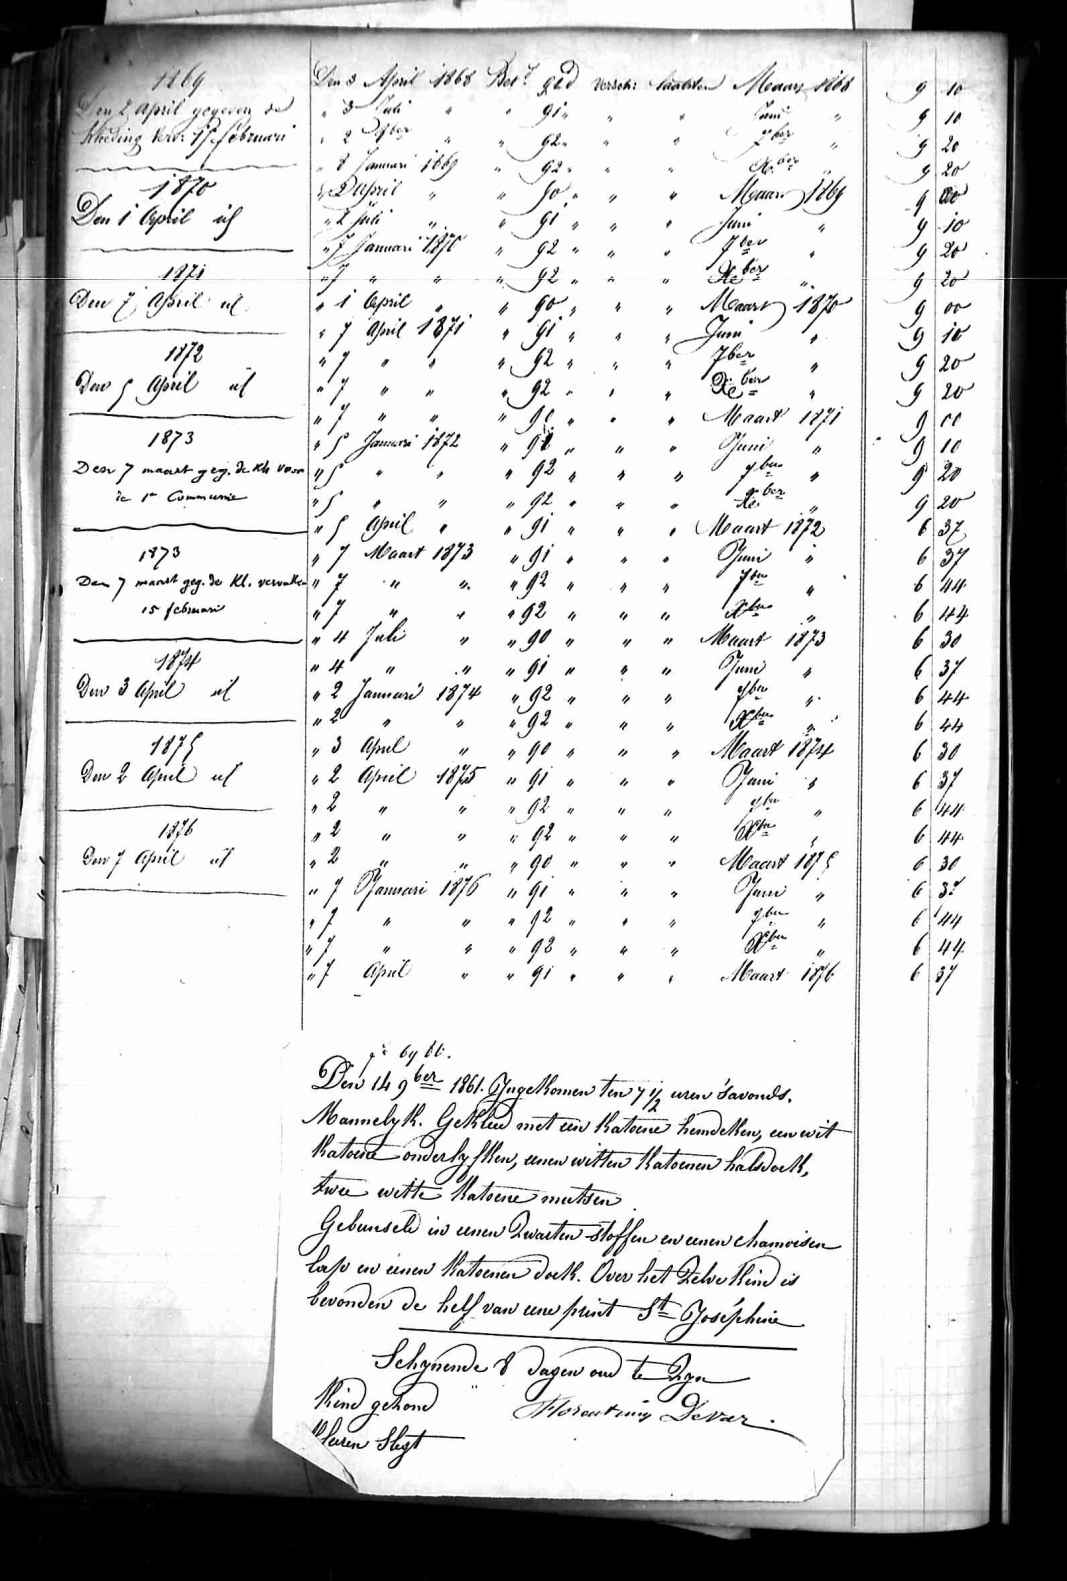 1869
Den 2 April gegeven de
Kleeding verv: 15 februari
1870
Den 1 April id
1871
Den 7 April id
1872
Den 5 April id
1873
Den 7 maart geg. de Kl. voor
de 1e Communie
1873
Den 7 maart geg. de Kl. vervallen
15 februari
1874
Den 3 April id
1875
Den 2 April id
1876
Den 7 April id
Den 3 April 1868 Bet. 91 d versch: Maart 1868 9 10
" 3 Juli " " 91 " " " Juni " 9 10
" 2 8ber " " 92 " " " 7ber " 9 20
" 8 Januari 1869 " 92 " " " Xber " 9 20
" 2 April " " 90 " " " Maart 1869 9 00
" 2 Juli " " 91 " " " Juni " 9 10
" 7 Januari 1870 " 92 " " " 7ber " 9 20
" 7 " " " 92 " " " Xber " 9 20
" 1 April " " 90 " " " Maart 1870 9 00
" 7 April 1871 " 91 " " " Juni " 9 10
" 7 " " " 92 " " " 7ber " 9 20
" 7 " " " 92 " " " Xber " 9 20
" 7 " " " 90 " " " Maart 1871 9 00
" 5 Januari 1872 " 91 " " " Juni " 9 10
" 5 " " " 92 " " " 7ber " 9 20
" 5 " " " 92 " " " Xber " 9 20
" 5 April " " 91 " " " Maart 1872 6 37
" 7 Maart 1873 " 91 " " " Juni " 6 37
" 7 " " " 92 " " " 7ber " 6 44
" 7 " " " 92 " " " Xber " 6 44
" 4 Juli " " 90 " " " Maart 1873 6 30
" 4 " " " 91 " " " Juni " 6 37
" 2 Januari 1874 " 92 " " " 7ber " 6 44
" 2 " " " 92 " " " Xber " 6 44
" 3 April " " 90 " " " Maart 1874 6 30
" 2 April 1875 " 91 " " " Juni " 6 37
" 2 " " " 92 " " " 7ber " 6 44
" 2 " " " 92 " " " Xber " 6 44
" 2 " " " 90 " " " Maart 1875 6 30
" 7 Januari 1876 " 91 " " " Juni " 6 37
" 7 " " " 92 " " " 7ber " 6 44
" 7 " " " 92 " " " Xber " 6 44
" 7 April " " 91 " " " Maart 1876 6 37
Den 14 9ber 1861. Ingekomen ten 7 1/2 uren 's avonds.
Mannelyk. Gekleed met een katoene hemdeken, een wit
katoene onderlyfken, eenen witten katoenen halsdoek,
twee witte katoene mutsen
Gebunseld in eenen zwarten stoffen en eenen chamoisen
lap en eenen katoenen doek. Over het zelve kind is
bevonden de helf van eene print St Joséphine
Schynende 8 dagen oud te zyn
Kind gezond Florentinus Dever.
Kleeren Slegt